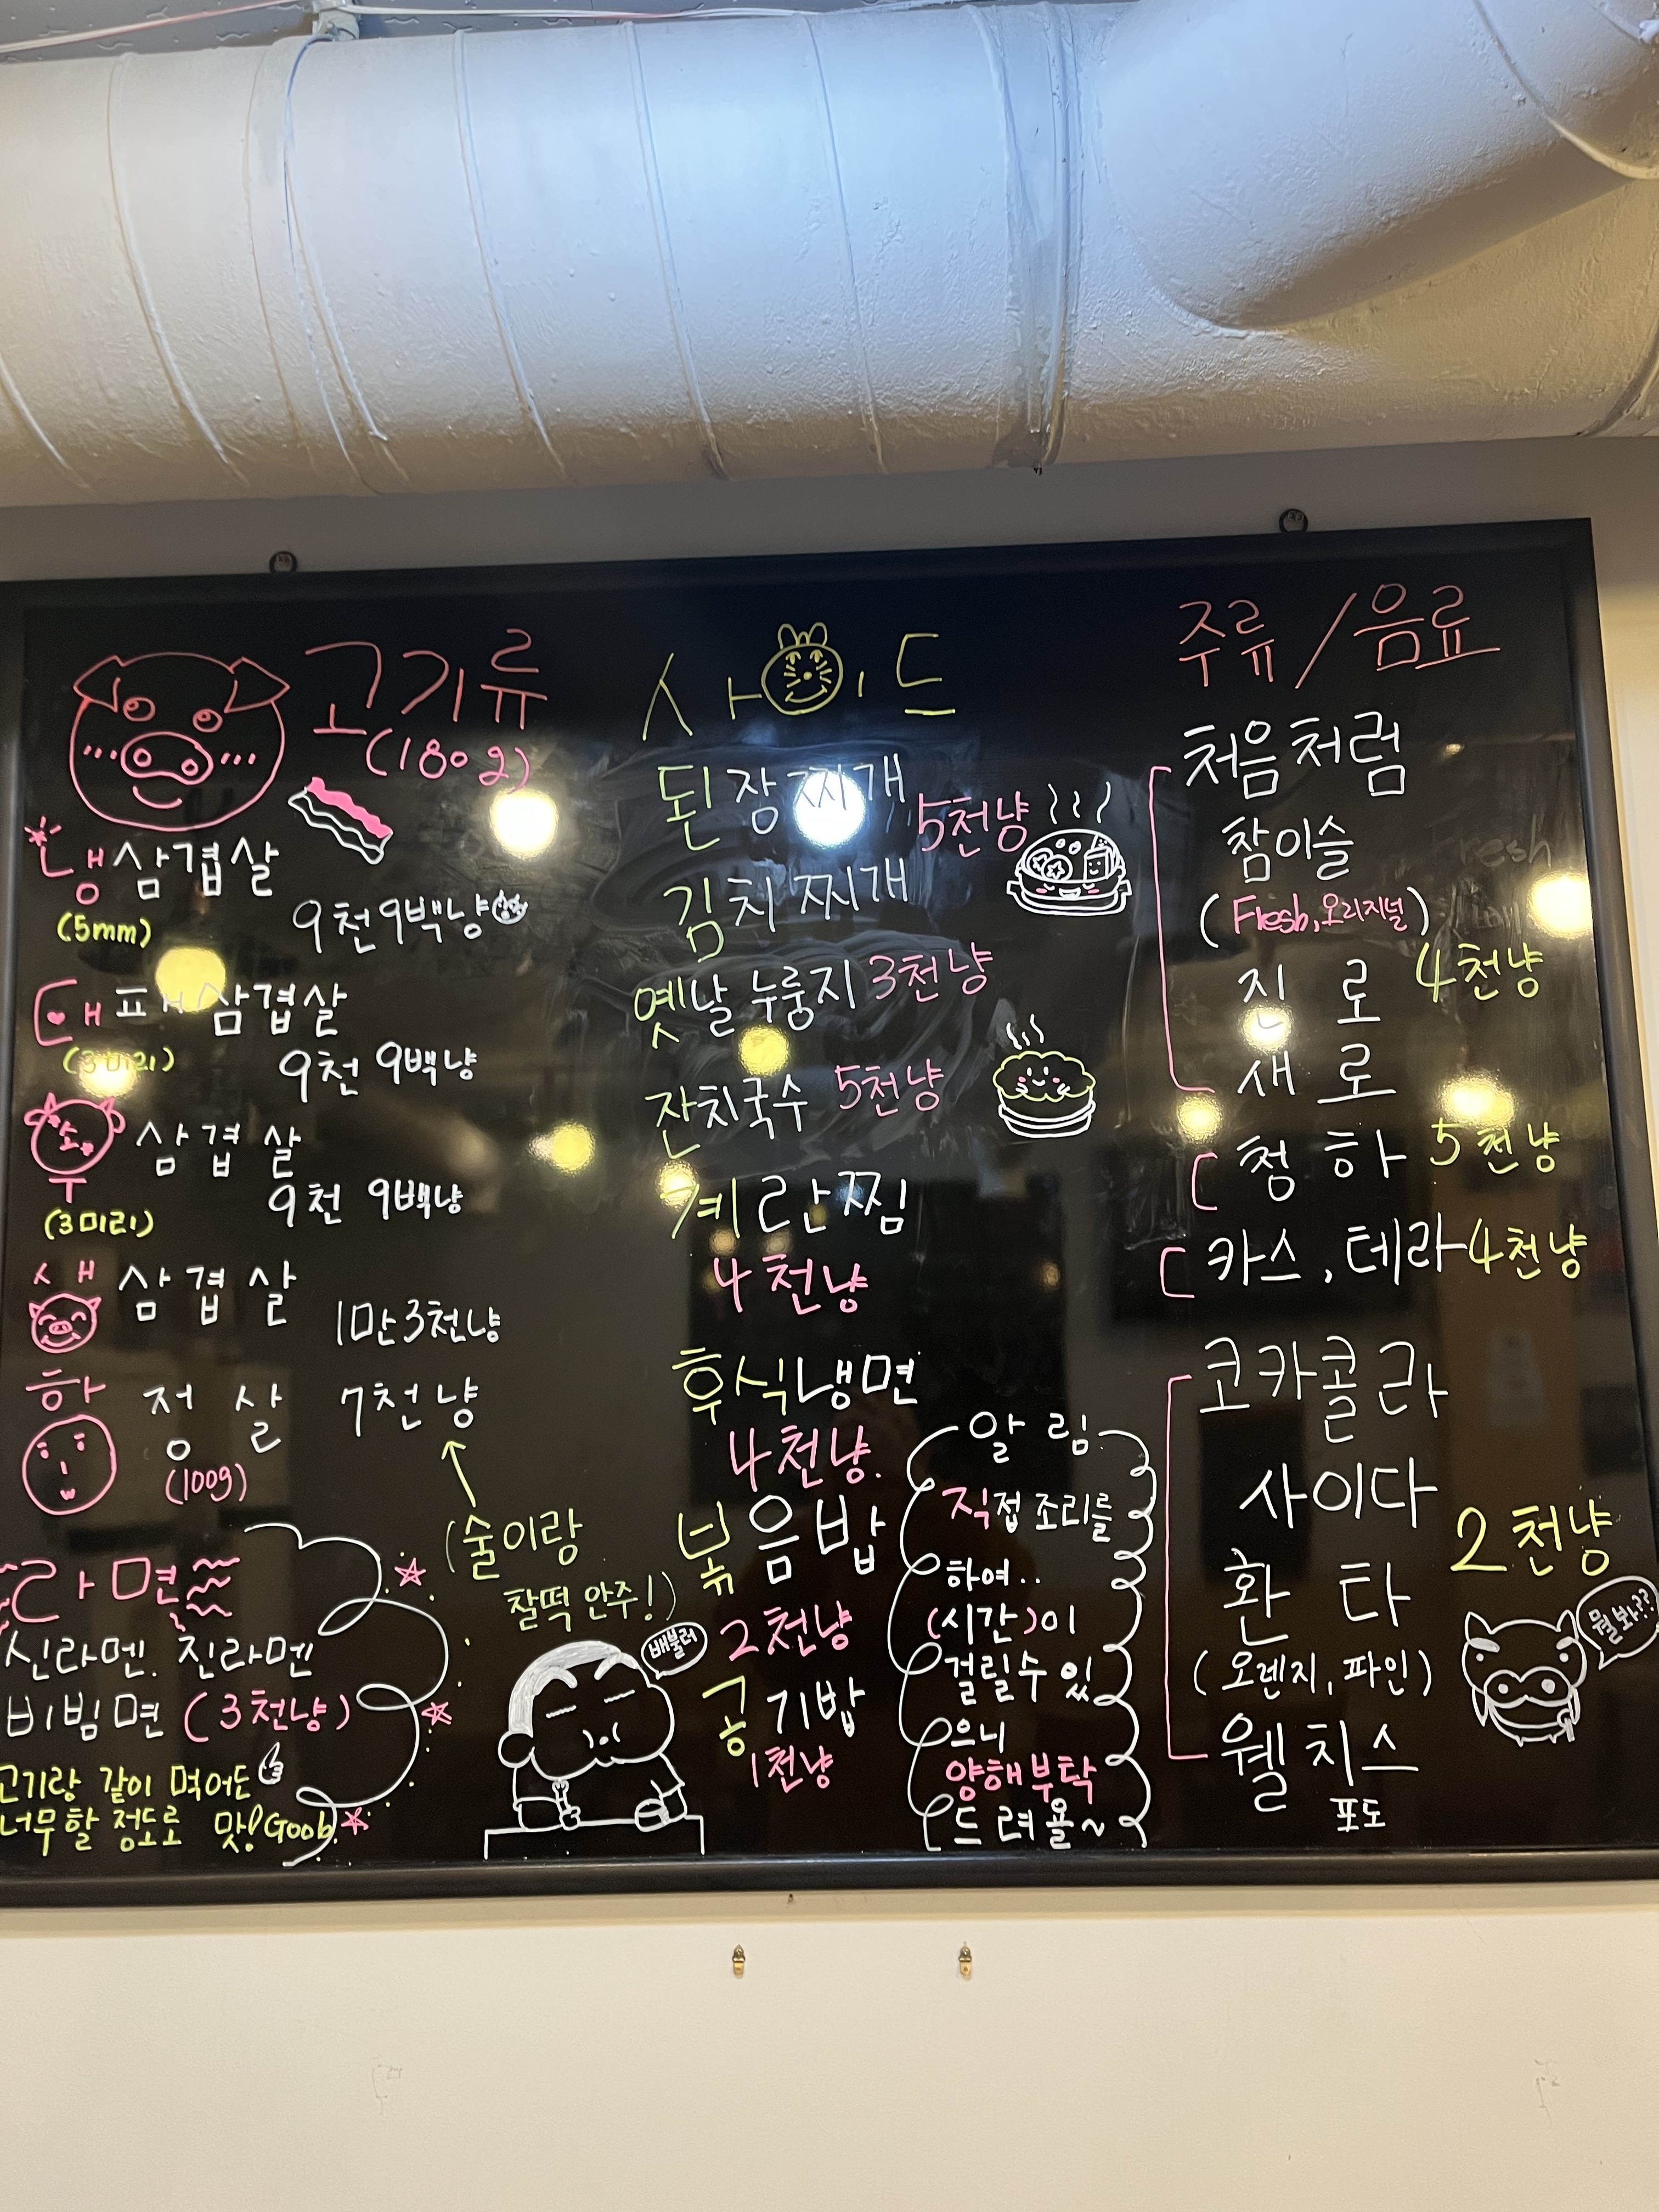 고기류
(180g)
냉삼겹살
(5mm)
9천9백냥
대패삼겹살
(3미리)
9천 9백냥
우삼겹살
9천 9백냥
(3미리)
생삼겹살
1만3천냥
항정살 7천냥
(100g)
(술이랑
찰떡 안주!)
라면
신라멘. 진라멘
비빔면 (3천냥)
고기랑 같이 먹어도
너무할 정도로 맛! Goob
배불러
사이드
된장찌개
5천냥
김치찌개
옛날 누룽지 3천냥
잔치국수 5천냥
계란찜
4천냥
후식냉면
4천냥.
볶음밥
2천냥
공기밥
1천냥
알림
직접 조리를
하여..
(시간)이
걸릴수 있
으니
양해부탁
드려욜~
주류/음료
처음처럼
참이슬
(Flesb, 오리지널)
진로 4천냥
새로
청하 5천냥
카스, 테라 4천냥
코카콜라
사이다
2천냥
환타
(오렌지, 파인)
웰치스
포도
뭘봐??